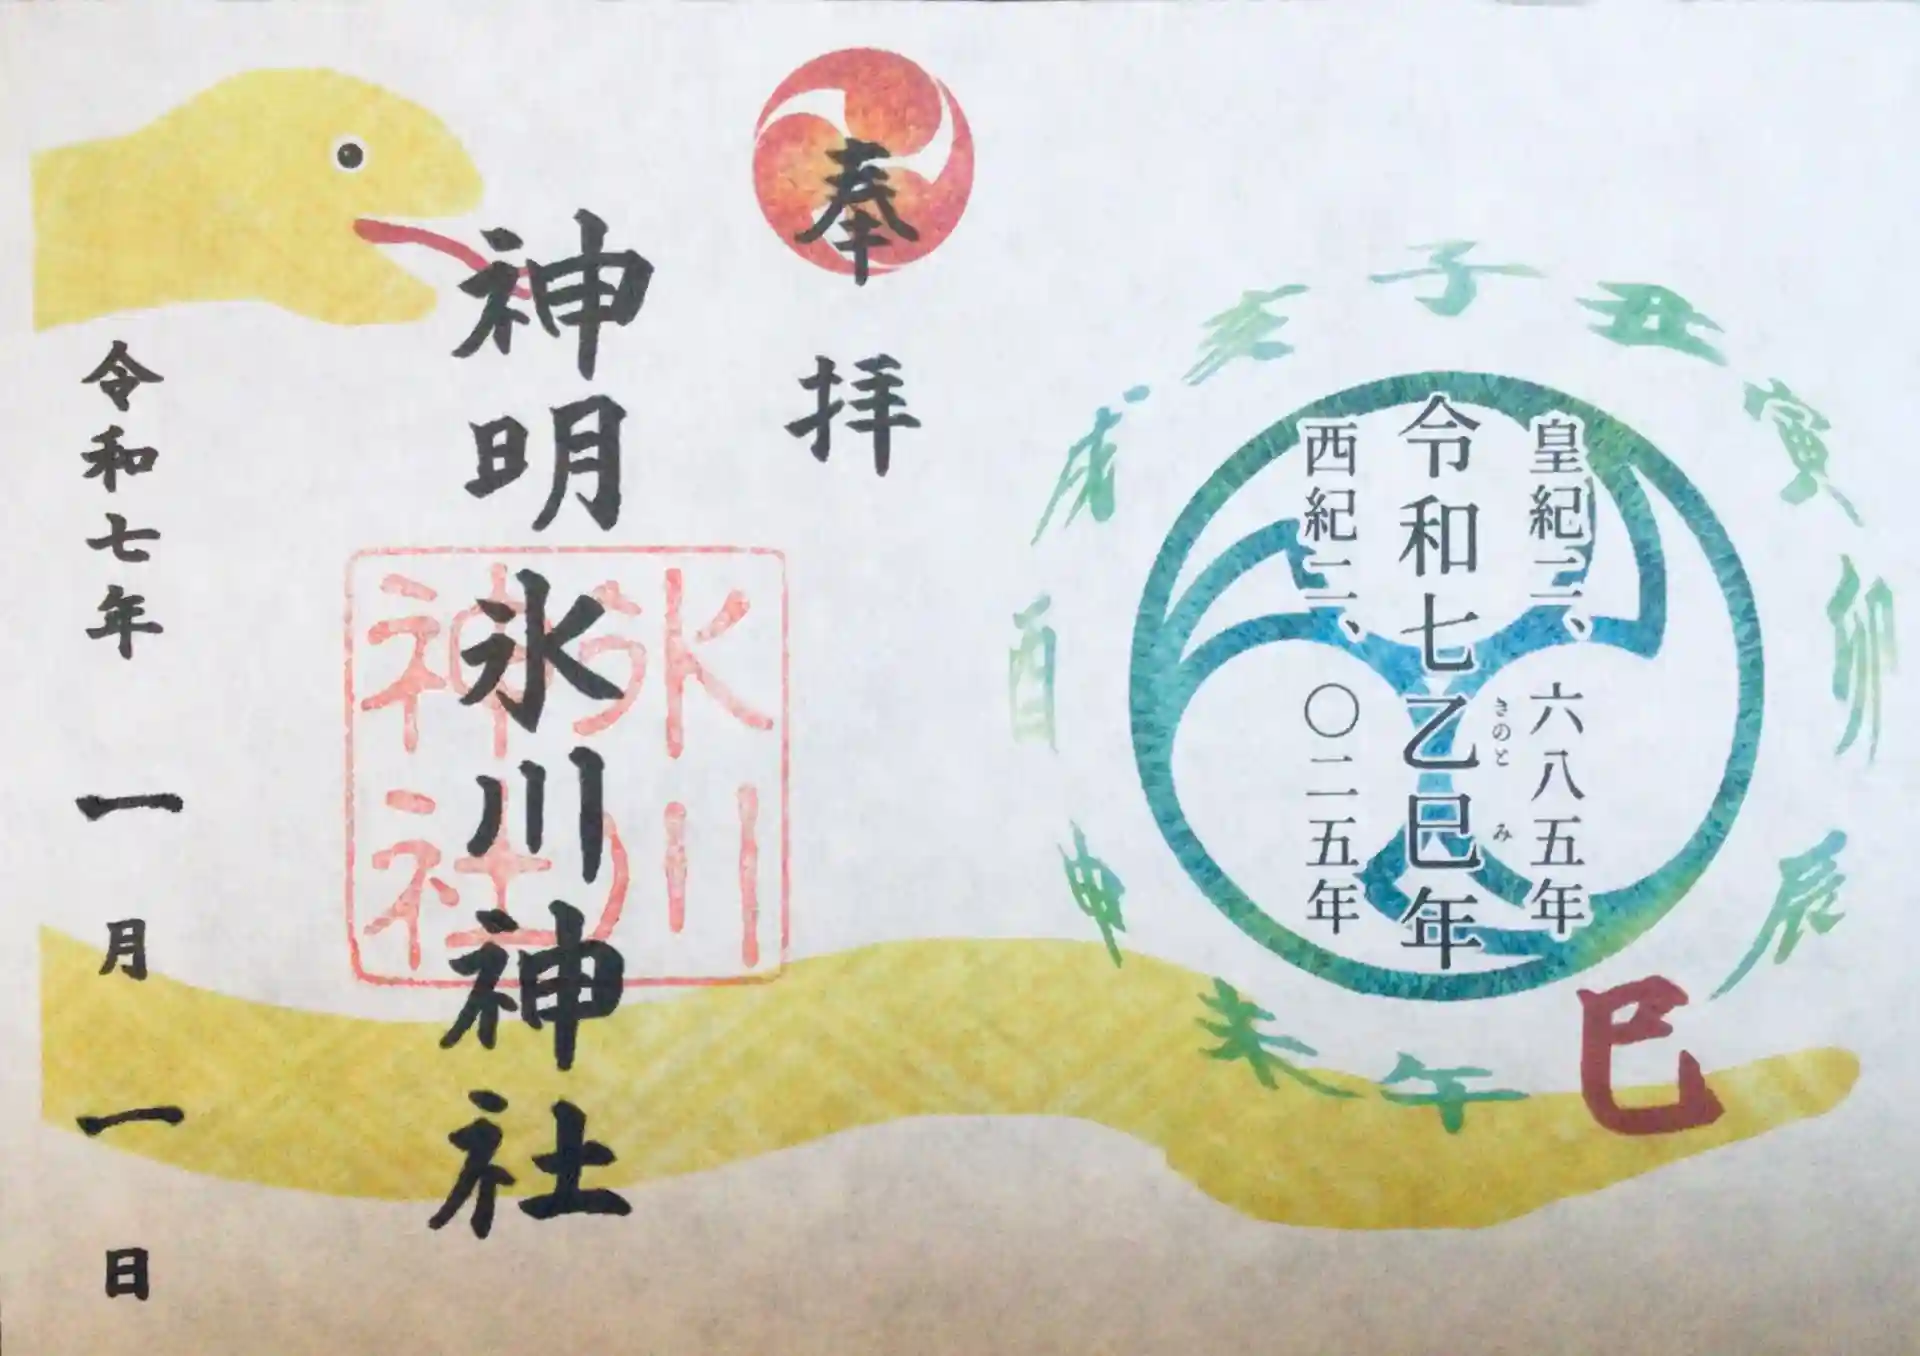 子
丑
寅
卯
辰
巳
午
未
申
酉
戌
亥
皇紀二、六八五年
令和七乙巳年
きのと み
西紀二、〇二五年
奉拝
神明氷川神社
氷川
神社
令和七年 一月 一日